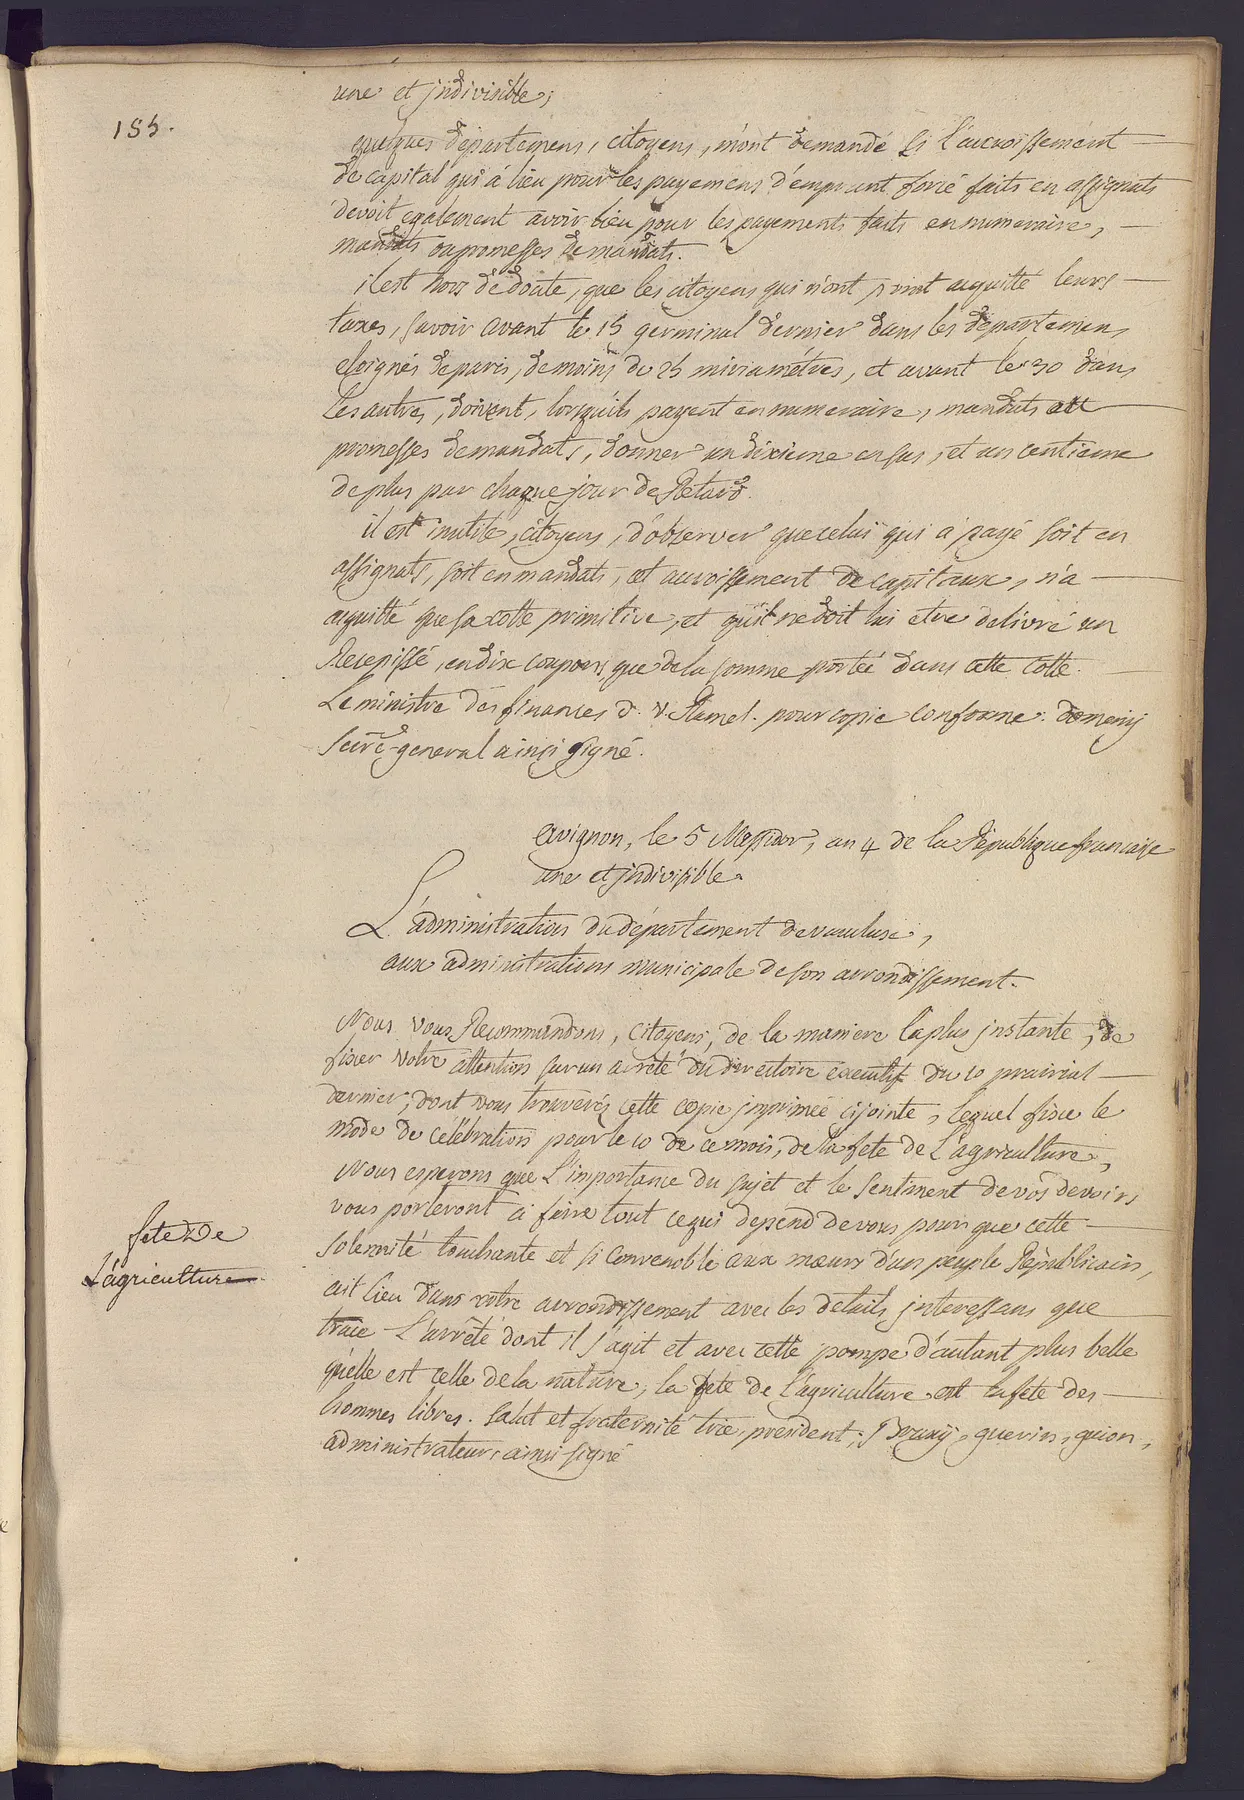 155.
une et jndivisible;
quelques départemens, citoyens, m'ont demandé si l'accroissement
de capital qui à lieu pour les payemens d'emprunt forcé faits en assignats
devoit egalement avoir lieu pour les payements faits en numeraire,
mandats ou promesses de mandats.
il est hors de doute, que les citoyens qui n'ont point acquitté leurs
taxes, savoir avant le 15 germinal dernier dans les départemens
eloignés de paris, de moins de 25 miriamétres, et avant le 30 dans
les autres, doivent, lorsqu'ils payent en numeraire, mandats ou
promesses de mandats, donner un dixieme en sus, et un centieme
de plus par chaque jour de Retard.
il est inutile, citoyens, d'observer que celui qui a payé soit en
assignats, soit en mandats, et accroissement de capitaux, n'a
acquitté que sa cotte primitive, et qu'il ne doit lui etre delivré un
Recepissé, en dix coupons, que de la somme portée dans cette cotte.
Le ministre des finances d. v. Ramel. pour copie conforme. domeny
secre. general ainsi signé.
avignon, le 5 Messidor, an 4 de la République francaise
une et jndivisible.
L'administration du département de vaucluse,
aux administrations municipale de son arrondissement.
Nous vous Recommandons, citoyens, de la maniere la plus jnstante, de
fixer votre attention sur un arreté du directoire executif du 10 prairial
dernier, dont vous trouverés cette copie jmprimée cijointe, lequel fixe le
mode de célébration pour le 10 de ce mois, de la fete de L'agriculture,
Nous esperons que L'importance du sujet et le sentiment de vos devoirs
vous porteront à faire tout ce qui depend de vous pour que cette
solennité touchante et si convenable aux mœurs d'un peuple Républicain,
ait lieu dans votre arrondissement avec les details jnteressans que
trace L'arrêté dont il s'agit et avec cette pompe d'autant plus belle
qu'elle est celle de la nature, la fete de L'agriculture est la fete des
hommes libres. salut et fraternité trie, president; Bruny, guerin, guion,
administrateurs, ainsi signé
fete De
L'agriculture